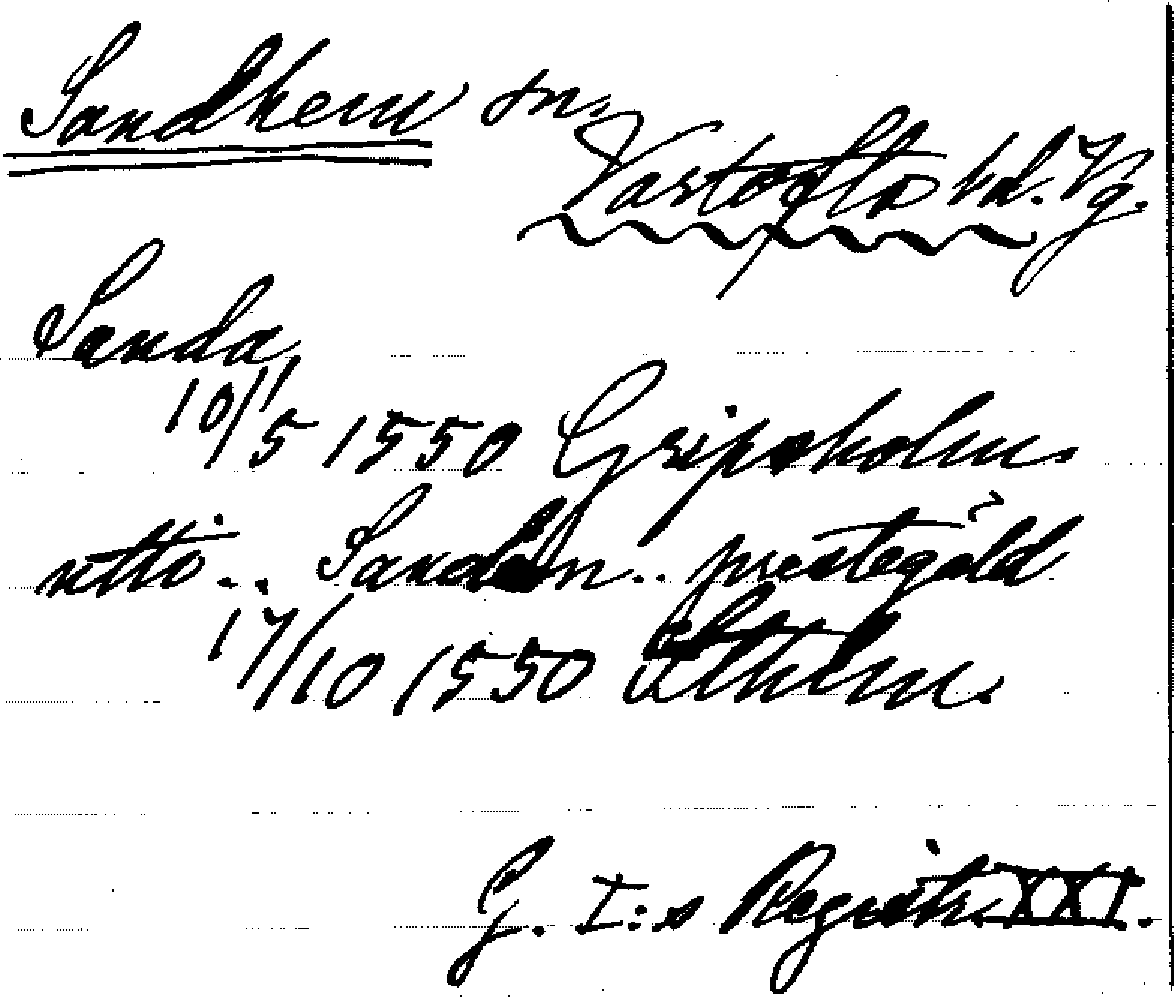 Sandhem sn.
Vartofta hd. Vg.
Sanda,
10/5 1550 Gripsholm.
utti .. Sandem .. prestegäld
17/10 1550 Sthlm.
G. I:s Registr. XXI.